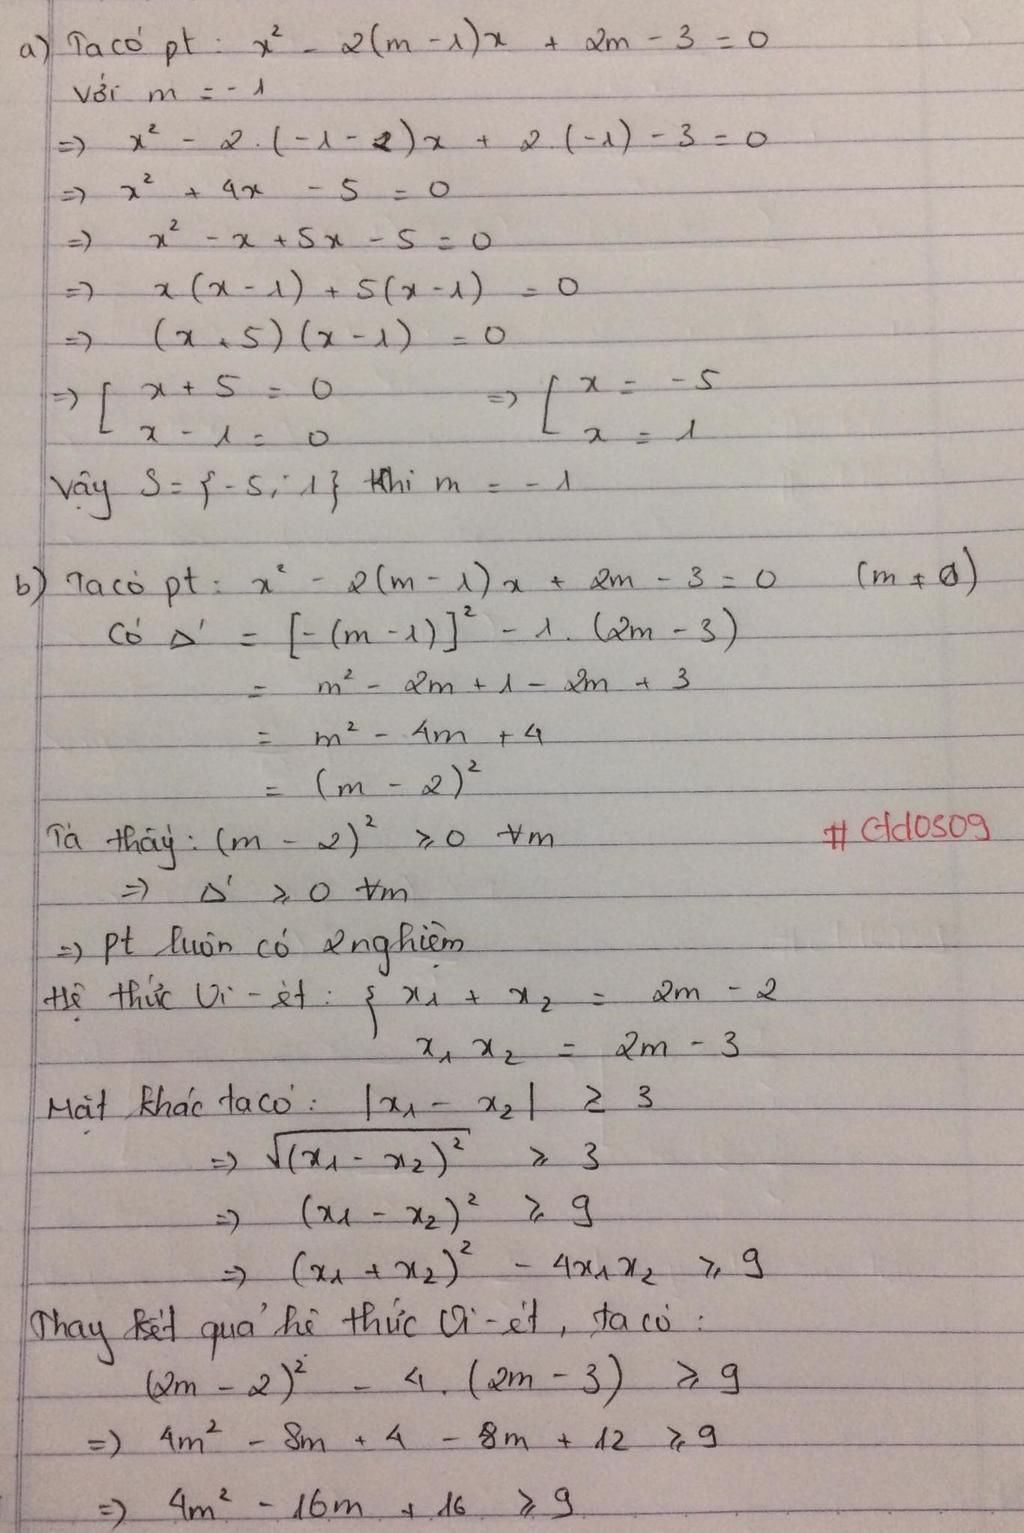 a) Ta có pt: x² - 2(m - 1)x + 2m - 3 = 0
Với m = -1
=> x² - 2.(-1 - 2)x + 2.(-1) - 3 = 0
=> x² + 4x - 5 = 0
=> x² - x + 5x - 5 = 0
=> x(x - 1) + 5(x - 1) = 0
=> (x + 5)(x - 1) = 0
=> [ x + 5 = 0 => [ x = -5
x - 1 = 0 x = 1
Vậy S = {-5; 1} khi m = -1
b) Ta có pt: x² - 2(m - 1)x + 2m - 3 = 0 (m ≠ 0)
Có Δ' = [-(m - 1)]² - 1.(2m - 3)
= m² - 2m + 1 - 2m + 3
= m² - 4m + 4
= (m - 2)²
Ta thấy: (m - 2)² ≥ 0 ∀m
=> Δ' ≥ 0 ∀m
=> pt luôn có 2 nghiệm
Hệ thức Vi-ét: { x₁ + x₂ = 2m - 2
x₁ x₂ = 2m - 3
Mặt khác ta có: |x₁ - x₂| ≥ 3
=> √(x₁ - x₂)² ≥ 3
=> (x₁ - x₂)² ≥ 9
=> (x₁ + x₂)² - 4x₁x₂ ≥ 9
Thay kết quả hệ thức Vi-ét, ta có:
(2m - 2)² - 4.(2m - 3) ≥ 9
=> 4m² - 8m + 4 - 8m + 12 ≥ 9
=> 4m² - 16m + 16 ≥ 9